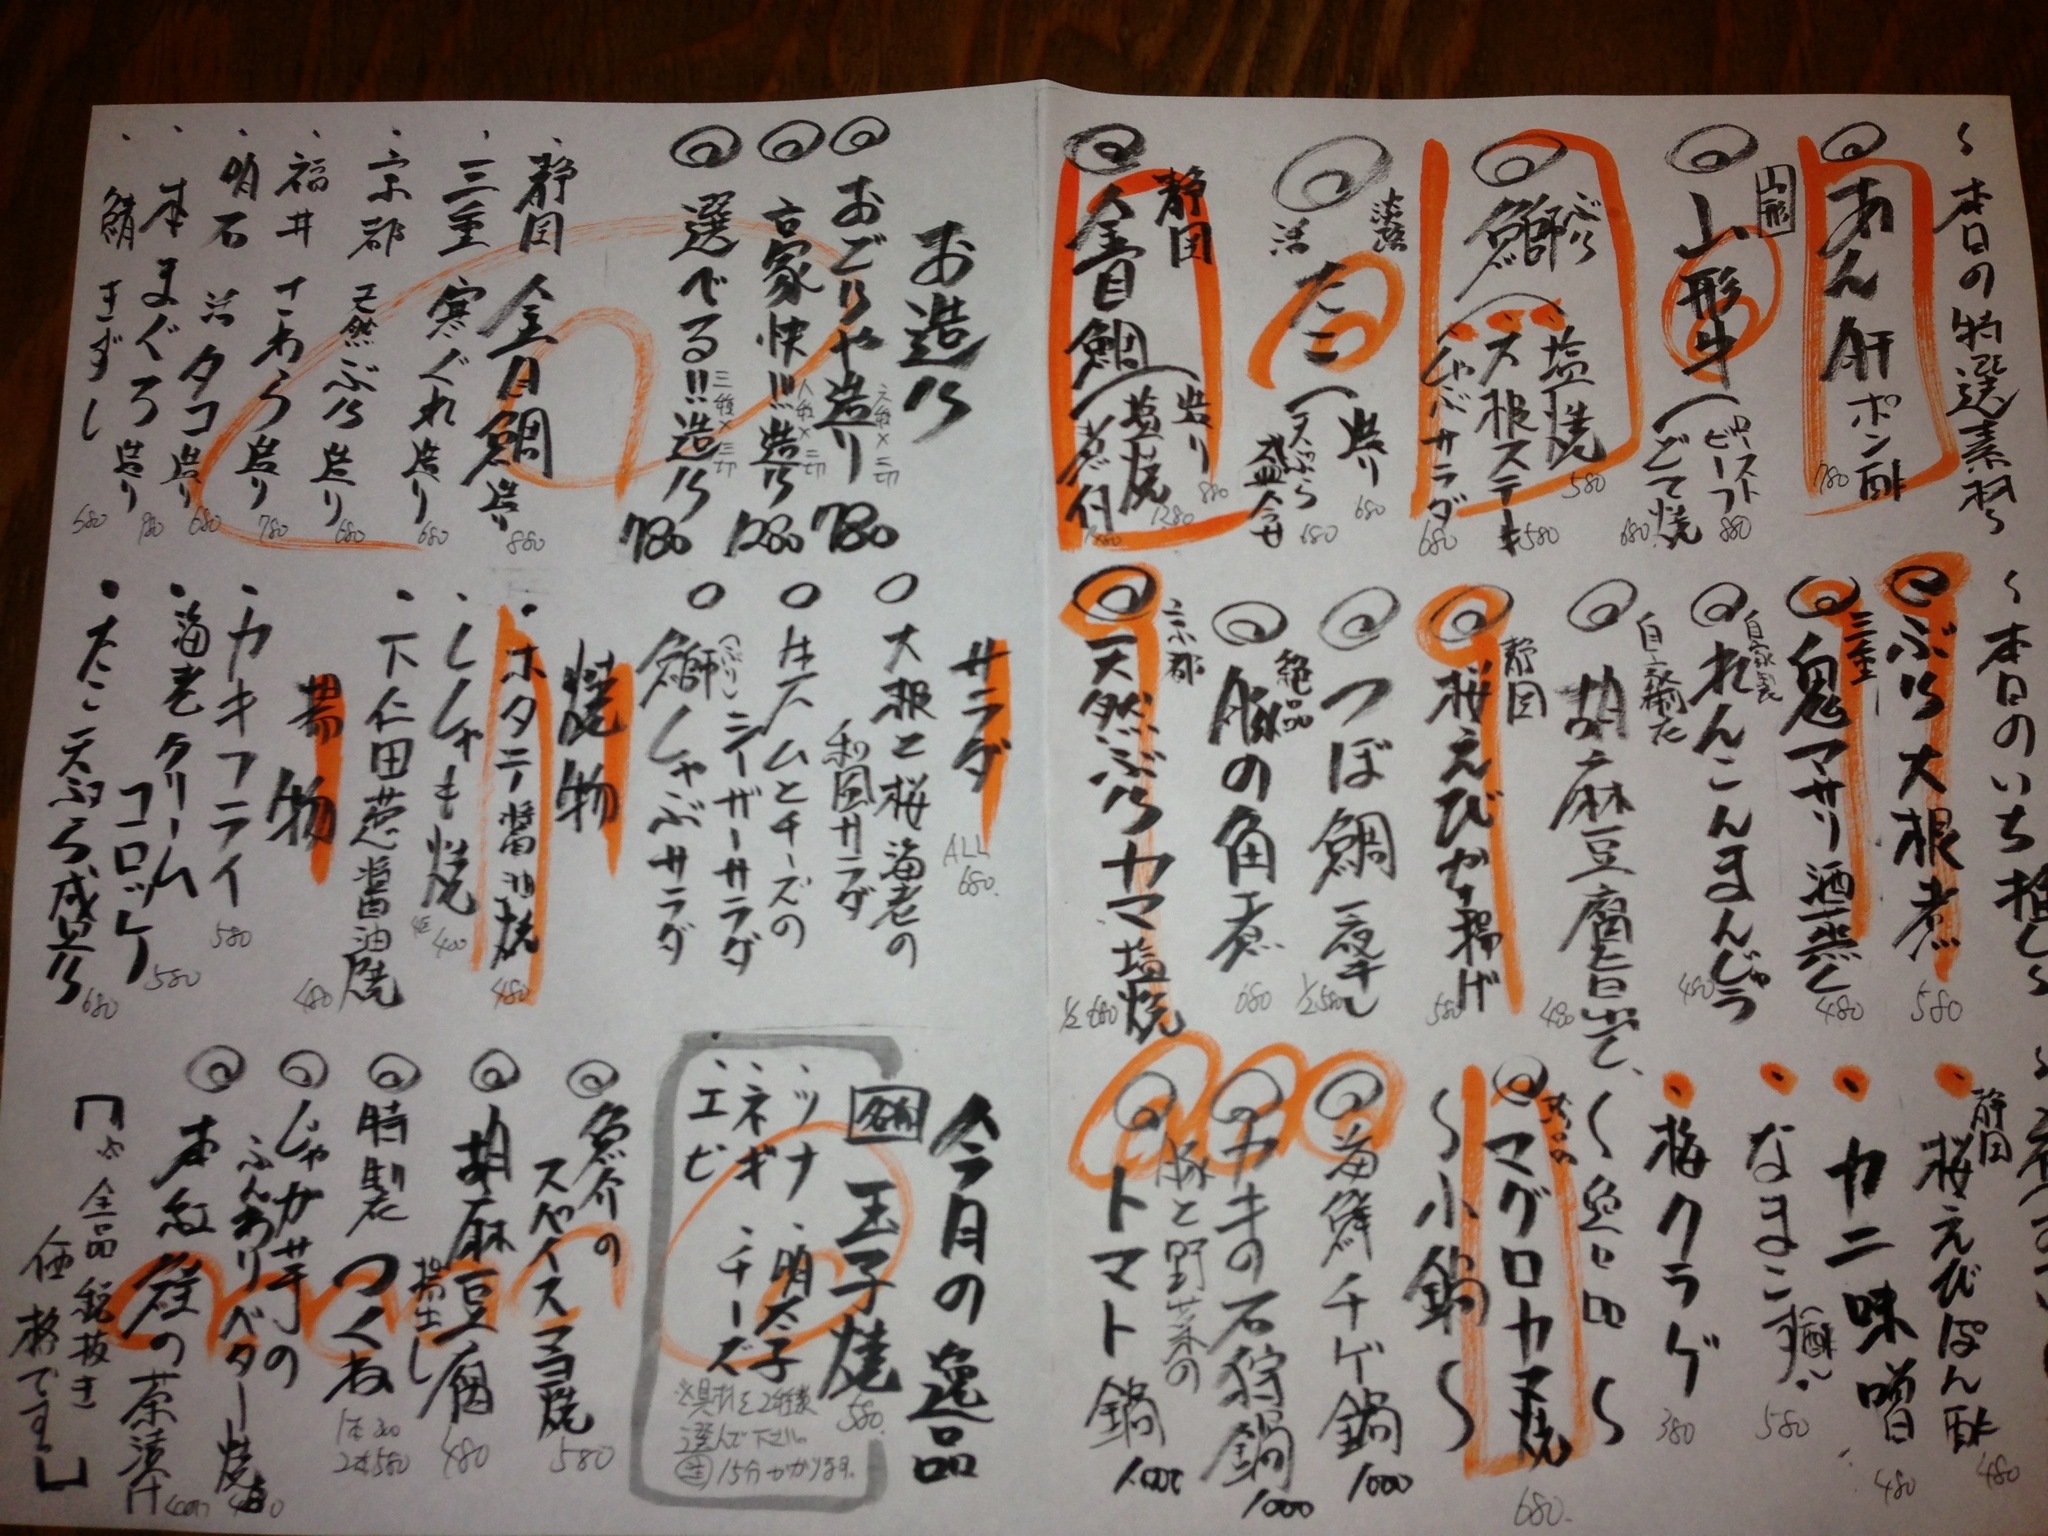 〜本日の特選素材〜
あん肝ポン酢 780
山形
山形牛
ローストビーフ 880
どて焼 680
ぶり
鰤
塩焼 580
大根ステーキ 580
しゃぶサラダ 680
淡路
活たこ
造り 680
天ぷら盛合せ 680
静岡
金目鯛
造り 880
塩焼 1280
煮付
〜本日のいち推し〜
ぶり大根煮 580
三重
鬼マサリ酒蒸し 480
自家製
れんこんまんじゅう 480
自家製
胡麻豆腐
静岡
桜えびかき揚げ 580
つぼ鯛一夜干し 1/2 580
絶品
豚の角煮 680
京都
天然ぶりカマ塩焼 1/2 680
静岡
桜えびぽん酢 480
カニ味噌 480
なまこ酢 580
梅クラゲ 380
マグロカマ焼 680
〜小鍋〜
海鮮チゲ鍋 1000
カキの石狩鍋 1000
豚と野菜の
トマト鍋 1000
お造り
おごりや造り 780
六種×三切
豪快!!!造り 1280
八種×三切
選べる!!造り 780
三種×三切
静岡 金目鯛造り 880
三重 寒ぐれ造り 680
京都 天然ぶり造り 680
福井 さわら造り 780
明石 活タコ造り 680
本まぐろ造り 980
鯖きずし 580
サラダ
ALL 680
大根と桜海老の
和風サラダ
生ハムとチーズの
シーザーサラダ
(ぶり)
鰤しゃぶサラダ
焼物
ホタテ醤油焼 480
ししゃも焼 400
下仁田葱醤油焼 480
揚物
カキフライ 580
海老クリーム
コロッケ 580
たこ天ぷら盛り 680
今月の逸品
玉子焼 580
・ツナ ・明太子
・ネギ ・チーズ
・エビ
※具材を2種類
選んで下さい。
注15分かかります。
魚介の
スパイスマヨ焼 580
胡麻豆腐
揚出し 480
特製つくね
1本 300
2本 580
じゃが芋の
ふんわりバター焼 480
本紅鮭の茶漬け 400
【※全品税抜き
価格です。】